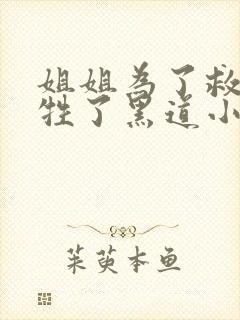 姐姐为了救
牲了黑道小
茱萸本鱼